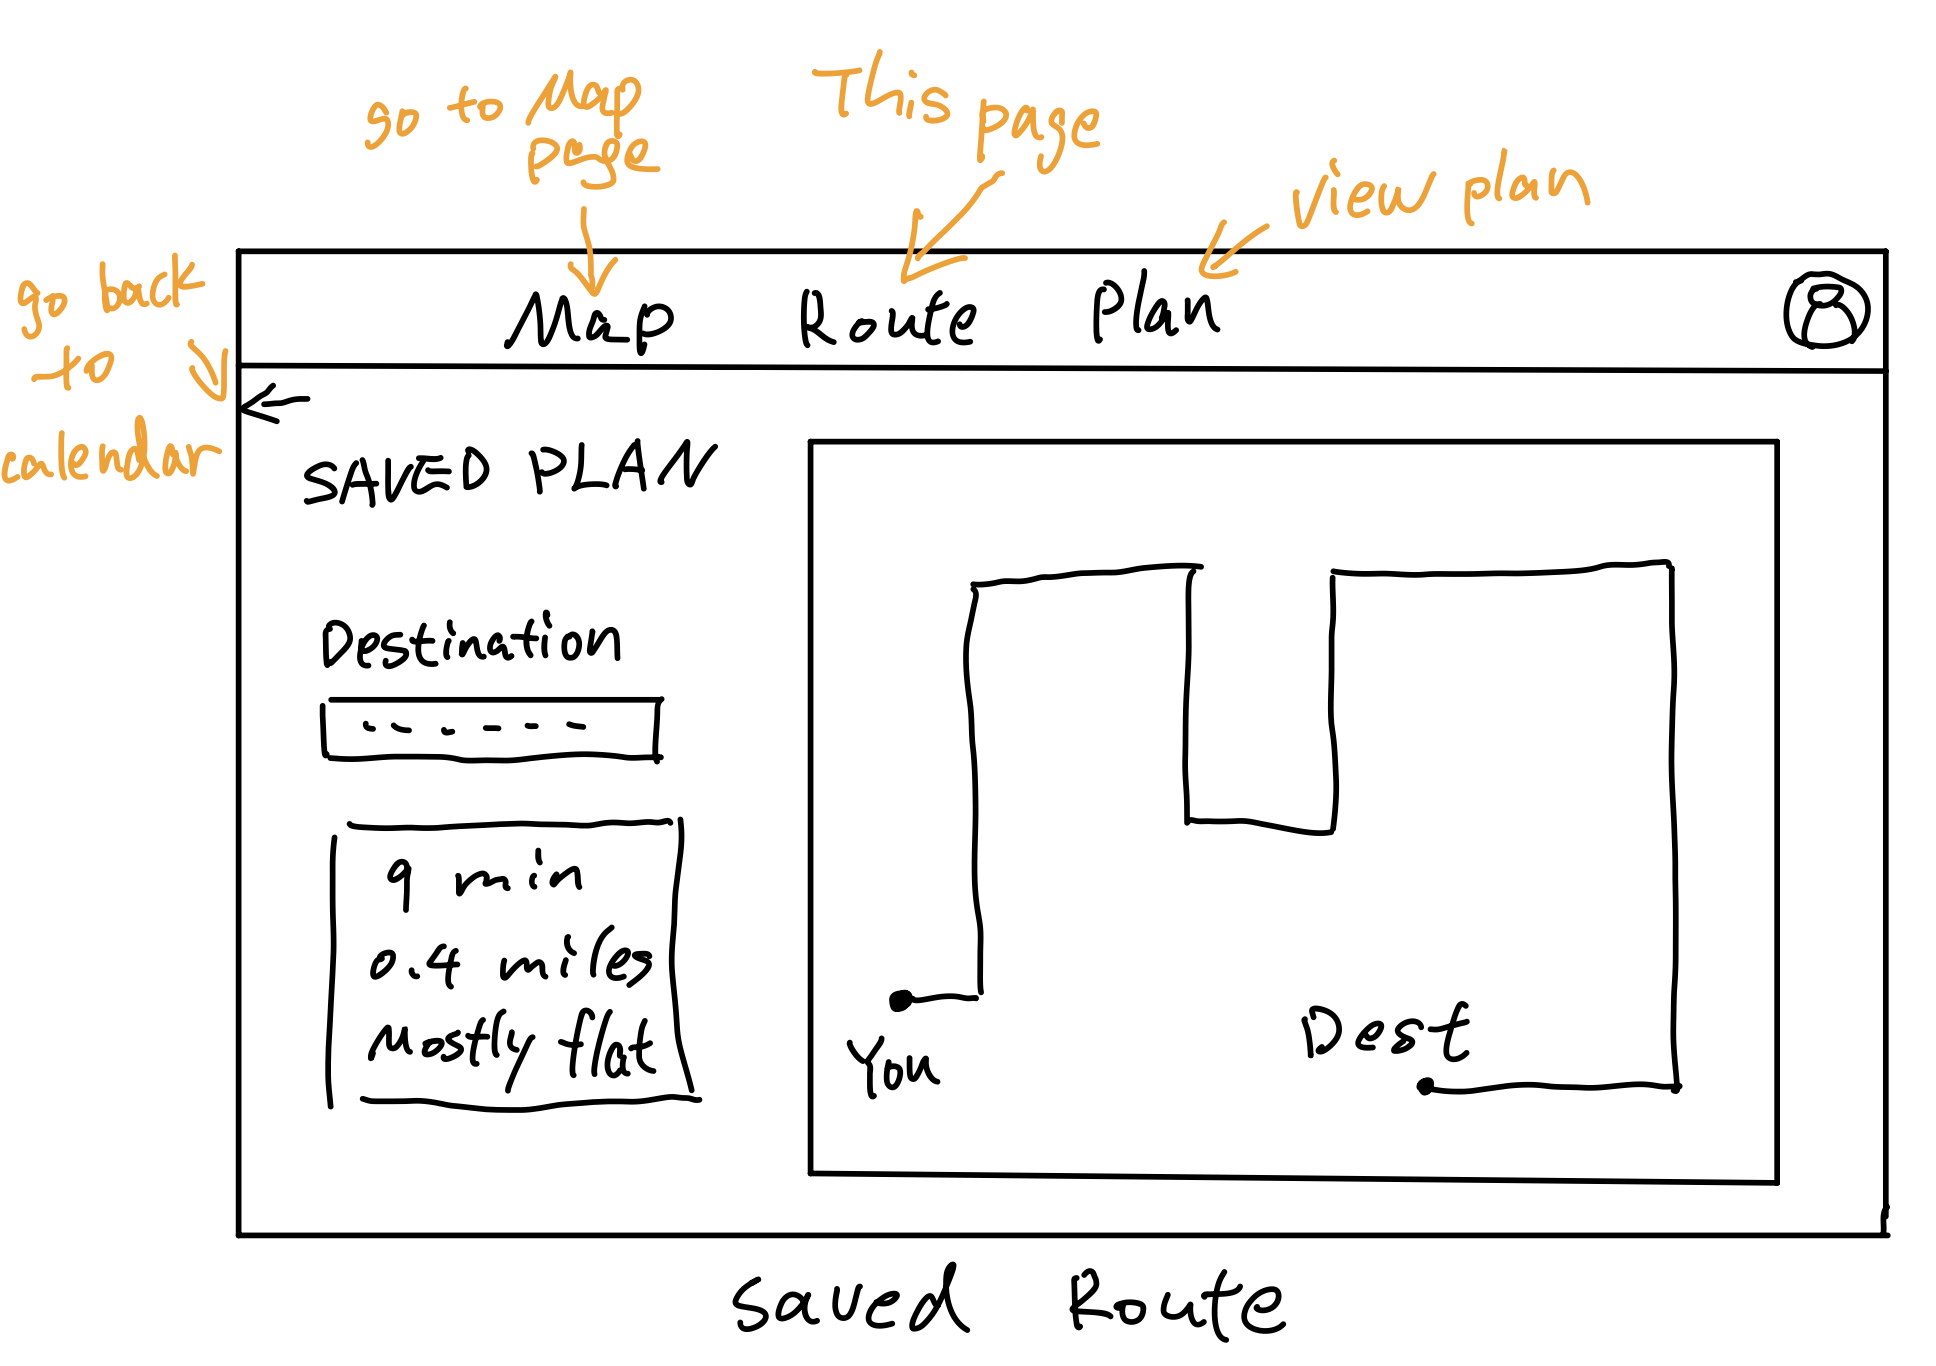 go to Map
page
This
page
view plan
go back
to
calendar
Map Route Plan
SAVED PLAN
Destination
9 min
0.4 miles
Mostly flat
You
Dest
Saved Route